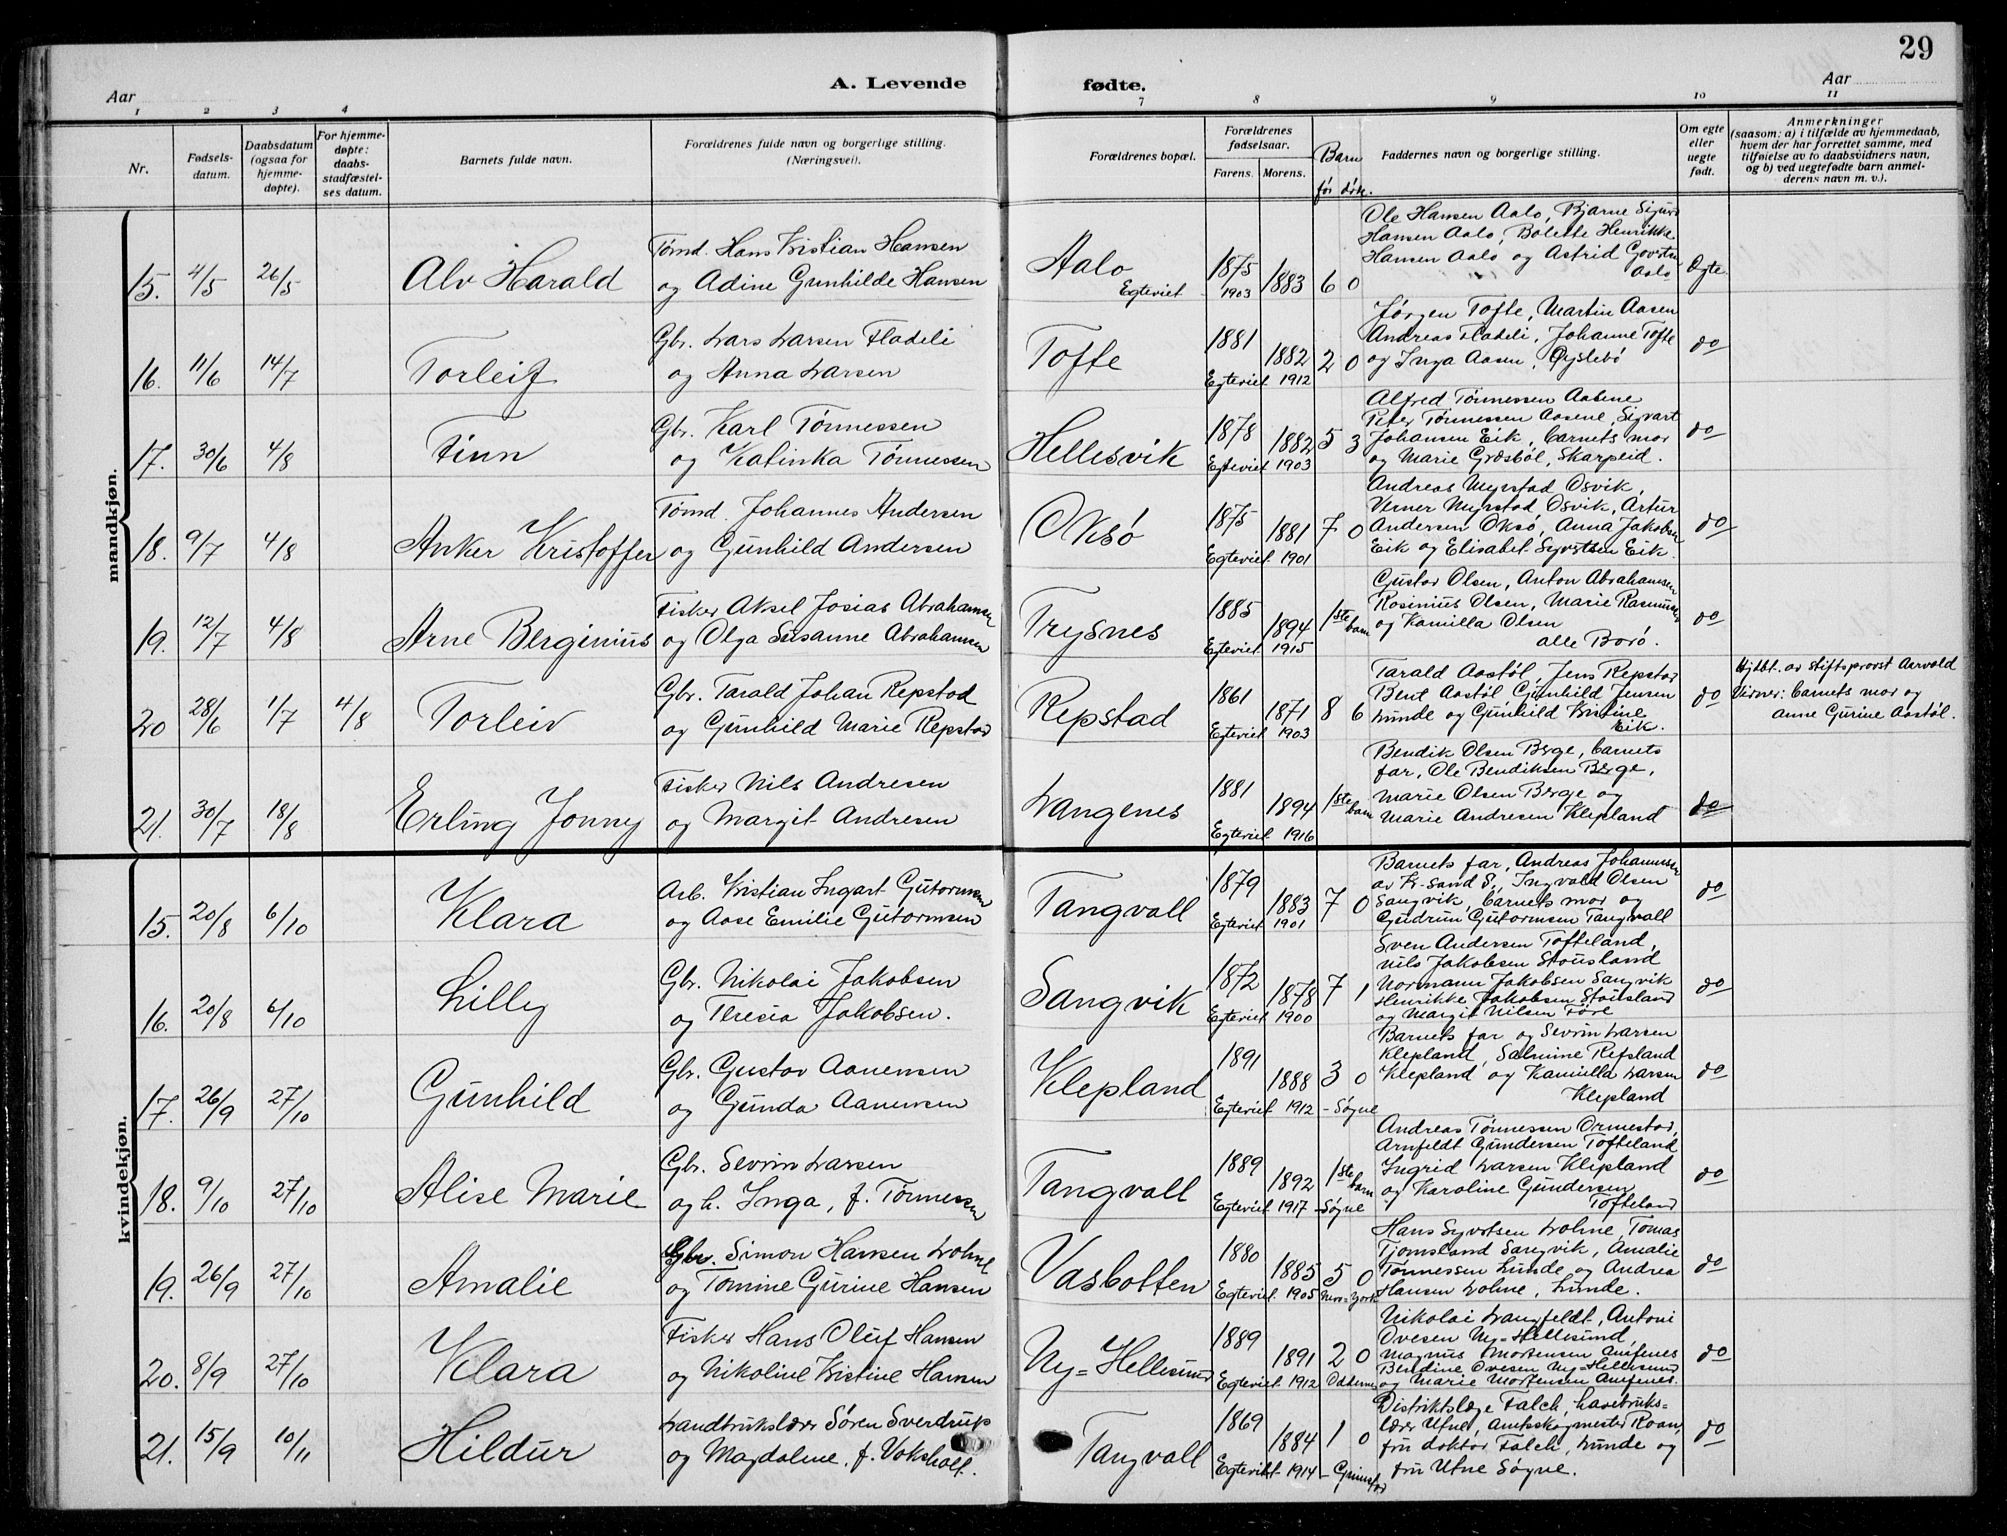 29
A. Levende fødte.
Aar
Aar
1 2 3 4 7 8 9 10 11
Nr.
Fødsels-
datum.
Daabsdatum
(ogsaa for
hjemme-
døpte).
For hjemme-
døpte:
daabs-
stadfæstel-
ses datum.
Barnets fulde navn.
Forældrenes fulde navn og borgerlige stilling.
(Næringsvei).
Forældrenes bopæl.
Forældrenes
fødselsaar.
Farens. Morens.
Barn
før døde.
Faddernes navn og borgerlige stilling.
Om egte
eller
uegte
født.
Anmerkninger
(saasom: a) i tilfælde av hjemmedaab,
hvem der har forrettet samme, med
tilføielse av to daabsvidners navn,
og b) ved uegtefødte barn anmel-
derens navn m. v.).
mandkjøn.
15. 4/5 26/5 Alv Harald
Tømd. Hans Kristian Hansen
og Adine Gunhilde Hansen
Aalo
Egteviet
1875 1903 1883 6 0
Ole Hansen Aalo, Bjarne Sigurd
Hansen Aalo, Bolette Henrikke
Hansen Aalo og Astrid
Aalo
Egte
16. 11/6 14/7 Torleif
Gbr. Lars Larsen Fladeli
og Anna Larsen
Tofte
1881 1882 2 0
Egteviet 1912
Jørgen Tofte, Martin Aasen
Andreas Fladeli, Johanne Tofte
og Inga Aasen, Øyslebø
do
17. 30/6 4/8 Finn
Gbr. Karl Tønnessen
og Katinka Tønnessen
Hellesvik
1878 1882 5 3
Egteviet 1903
Alfred Tønnessen Aabene
Peter Tønnessen Aasene, Sigvart
Johansen Eik, barnets mor
og Marie Græsbøl, Skarpeid.
do
18. 9/7 4/8 Anker Kristoffer
Tømd. Johannes Andersen
og Gunhild Andersen
Oksø
1875 1881 7 0
Egteviet 1901
Andreas Myrstad Osvik,
Verner Myrstad Osvik, Artur
Andersen Oksø, Anna Jakobsen
Eik og Elisabet Syvertsen Eik.
do
19. 12/7 4/8 Arne Berginius
Fisker Aksel Josias Abrahamsen
og Olga Susanne Abrahamsen
Trysnes
1885 1894 1ste barn
Egteviet 1915
Gustav Olsen, Anton Abrahamsen
Rosinius Olsen, Marie Rasmussen
og Kamilla Olsen
alle Borø.
do
20 28/6 1/7 4/8 Torleiv
Gbr. Tarald Johan Repstad
og Gunhild Marie Repstad
Repstad
1861 1871 8 6
Egteviet 1903
Tarald Aastøl, Jens Repstad
Bent Aastøl Gunhild Jensen
Lunde og Gunhild Kristine
Eik.
do
Hjdbt. av stiftsprovst Aarvold
Vidner: barnets mor og
Anne Gurine Aastøl.
21. 30/7 18/8 Erling Jonny
Fisker Nils Andresen
og Margit Andresen
Langenes
1881 1894 1ste barn
Egteviet 1916
Bendik Olsen Berge, barnets
far, Ole Bendiksen Berge,
Marie Olsen Berge og
Marie Andresen Klepland
do
kvindekjøn.
15. 20/8 6/10 Klara
Arb. Kristian Ingart Gutormsen
og Aase Emilie Gutormsen
Tangvall
1879 1883 7 0
Egteviet 1901
Barnets far, Andreas Johannessen
av Kr-sand S., Ingvald Olsen
Sangvik, barnets mor og
Gudrun Gutormsen Tangvall
do
16. 20/8 6/10 Lilly
Gbr. Nikolai Jakobsen
og Teresia Jakobsen.
Sangvik
1872 1878 7 1
Egteviet 1900
Sven Andersen Tofteland,
Nils Jakobsen Stousland
Normann Jakobsen Sangvik
Henrikke Jakobsen Stousland
og Margit Nilsen Føre
do
17. 26/9 27/10 Gunhild
Gbr. Gustav Aanensen
og Gunda Aanensen
Klepland
1891 1888 3 0
Egteviet 1912 - Søgne
Barnets far og Sevrin Larsen
Klepland, Salmine Refsland
Klepland og Kamilla Larsen
Klepland
do
18. 9/10 27/10 Alise Marie
Gbr. Sevrin Larsen
og h. Inga, f. Tønnessen
Tangvall
1889 1892 1ste barn
Egteviet 1917 - Søgne
Andreas Tønnessen Ormestad,
Arnfeldt Gundersen Tofteland
Ingrid Larsen Klepland
og Karoline Gundersen
Tofteland
do
19. 26/9 27/10 Amalie
Gbr. Simon Hansen Lohne
og Tomine Gurine Hansen
Vasbotten
1880 1885 5 0
Egteviet 1905 New=York
Hans Syvertsen Lohne, Tomas
Tjomsland Sangvik, Amalie
Tønnessen Lunde og Andrea
Hansen Lohne, Lunde.
do
20. 8/9 27/10 Klara
Fisker Hans Oleif Hansen
og Nikoline Kristine Hansen
Ny=Hellesund
1889 1891 2 0
Egteviet 1912 Oddernes
Nikolai Langfeldt, Antoni
Ovesen Ny=Hellesund,
Magnus Mortensen Amfenes
Bendine Ovesen Ny=Hellesund
og Marie Mortensen Amfenes.
do
21. 15/9 10/11 Hildur
Landbrukslærer Søren Sverdrup
og Magdalene, f. Voksholt.
Tangvall
1869 1884 1 0
Egteviet 1914 - Grimstad
Distriktslæge Falch, havebruks=
lærer Utne, Amtsskogmester Roan,
fru doktor Falch, Lunde og
fru Utne Søgne.
do